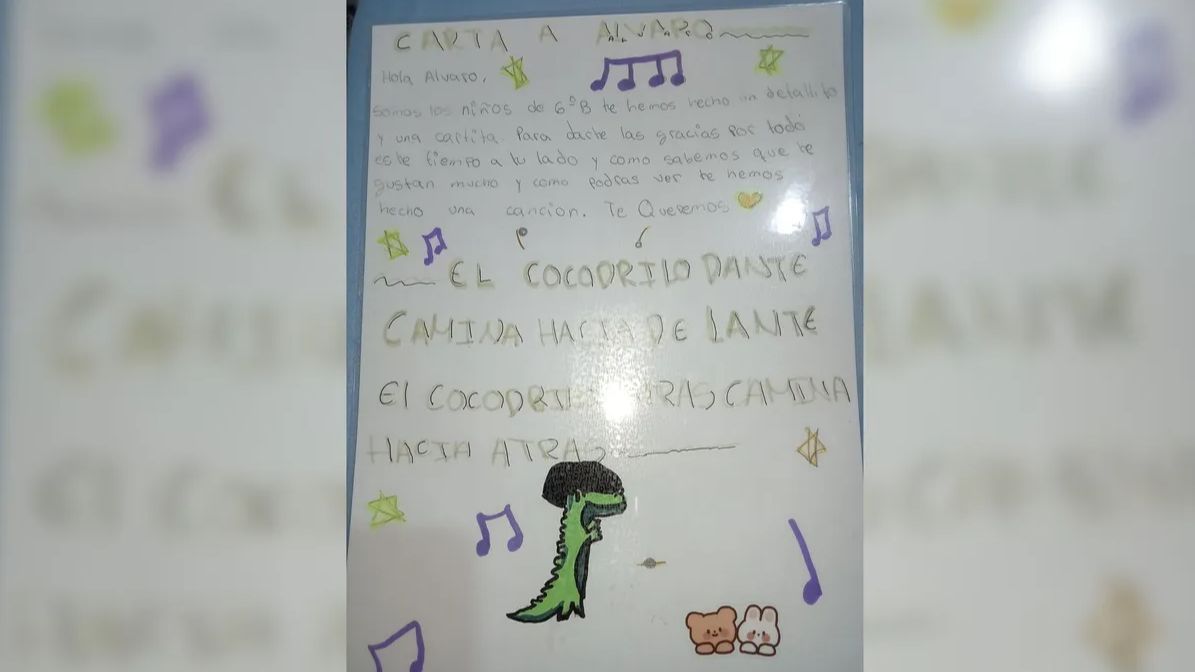 CARTA A ALVARO
Hola Alvaro,
Somos los niños de 6ºB te hemos hecho un detallito
y una cartita. Para darte las gracias por todo
este tiempo a tu lado y como sabemos que te
gustan mucho y como podras ver te hemos
hecho una cancion. Te Queremos
EL COCODRILO DANTE
CAMINA HACIA DELANTE
El COCODRI RAS CAMINA
HACIA ATRAS